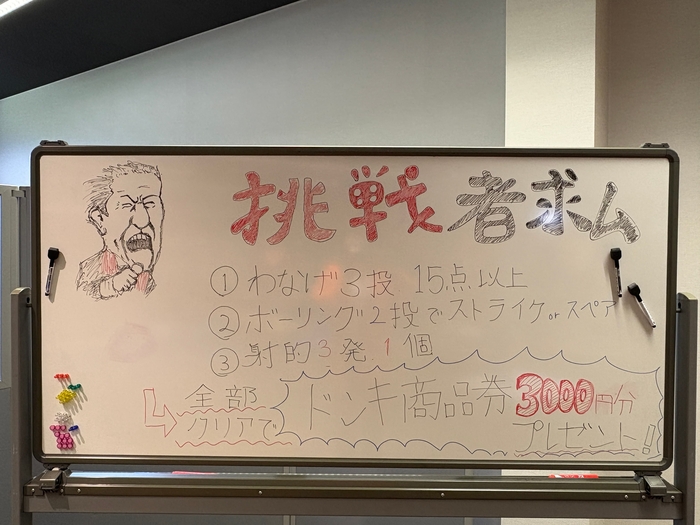 挑戦者求ム
① わなげ3投 15点以上
② ボーリング2投でストライク or スペア
③ 射的3発1個
全部クリアで
ドンキ商品券3000円分
プレゼント!!